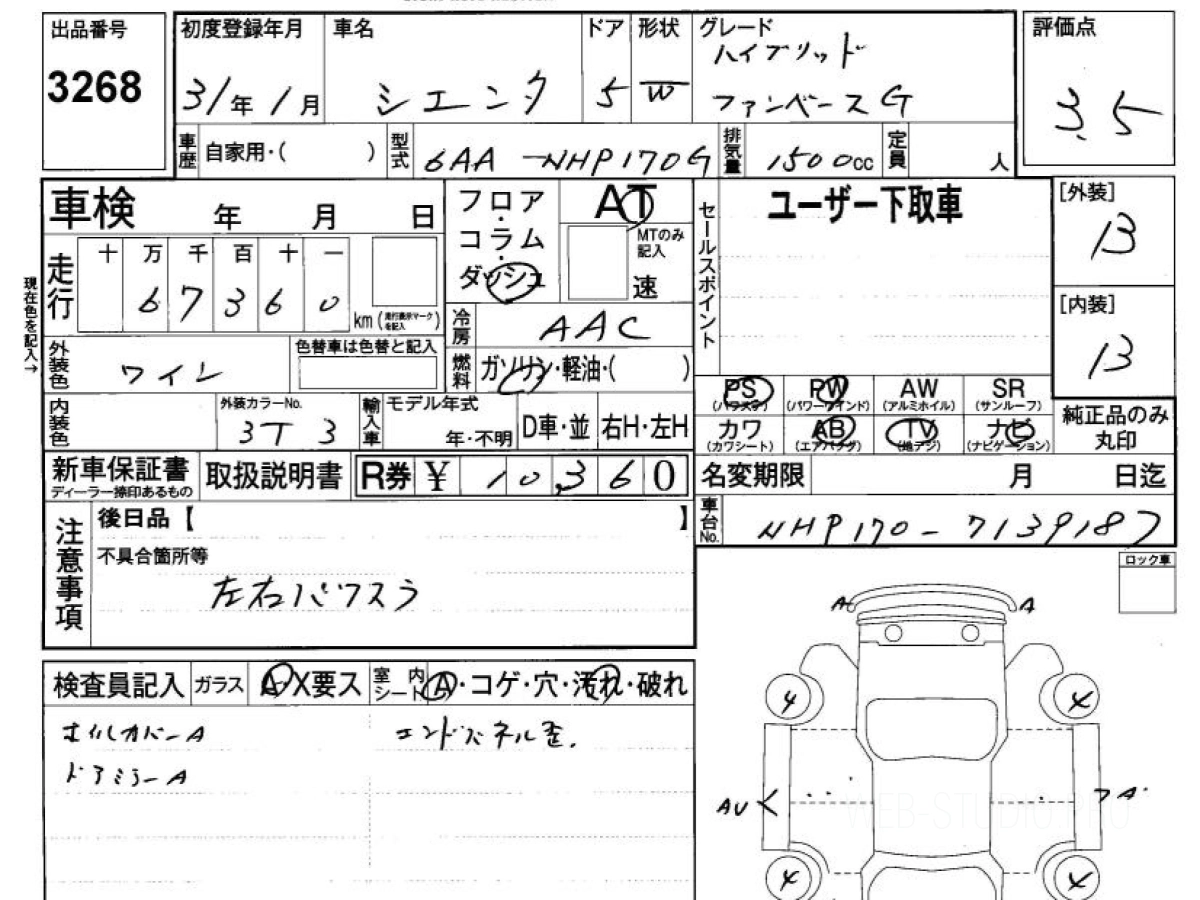 出品番号
3268
初度登録年月
31年 1月
車名
シエンタ
ドア
5
形状
W
グレード
ハイブリッド
ファンベース G
評価点
3.5
車歴 自家用・( )
型式 6AA - NHP170G
排気量 1500cc
定員 人
車検 年 月 日
走行 十 万 千 百 十 一
6 7 3 6 0
km (走行表示マークを記入)
現在色を記入→
外装色 ワイン
色替車は色替と記入
フロア・コラム・ダッシュ
AT
MTのみ記入
速
冷房 AAC
燃料 ガソリン・軽油・( )
セールスポイント
ユーザー下取車
[外装]
13
[内装]
13
PS (パワステ)
PW (パワーウインド)
AW (アルミホイル)
SR (サンルーフ)
カワ (カワシート)
AB (エアバッグ)
TV (地デジ)
ナビ (ナビゲーション)
純正品のみ丸印
内装色
外装カラーNo.
3T3
輸入車
モデル年式
年・不明
D車・並
右H・左H
新車保証書
ディーラー捺印あるもの
取扱説明書
R券 ¥ 10,360
名変期限 月 日迄
車台No. NHP170-7139187
注意事項
後日品【 】
不具合箇所等
左右パワスラ
ロック車
検査員記入
ガラス A・X要ス
室内シート A・コゲ・穴・汚れ・破れ
ホイルカバーA
エンドパネル歪.
ドアミラーA
A A
4 4
AU A
4 4
WEB-STUDIO.PRO